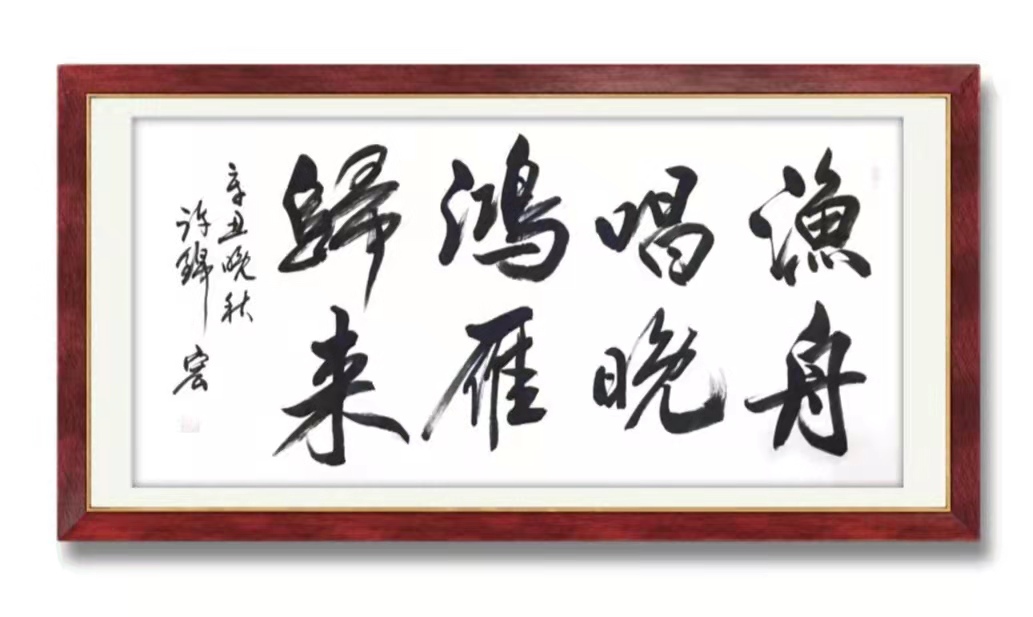 漁舟
唱晚
鸿雁
歸来
辛丑晚秋
许锦宏